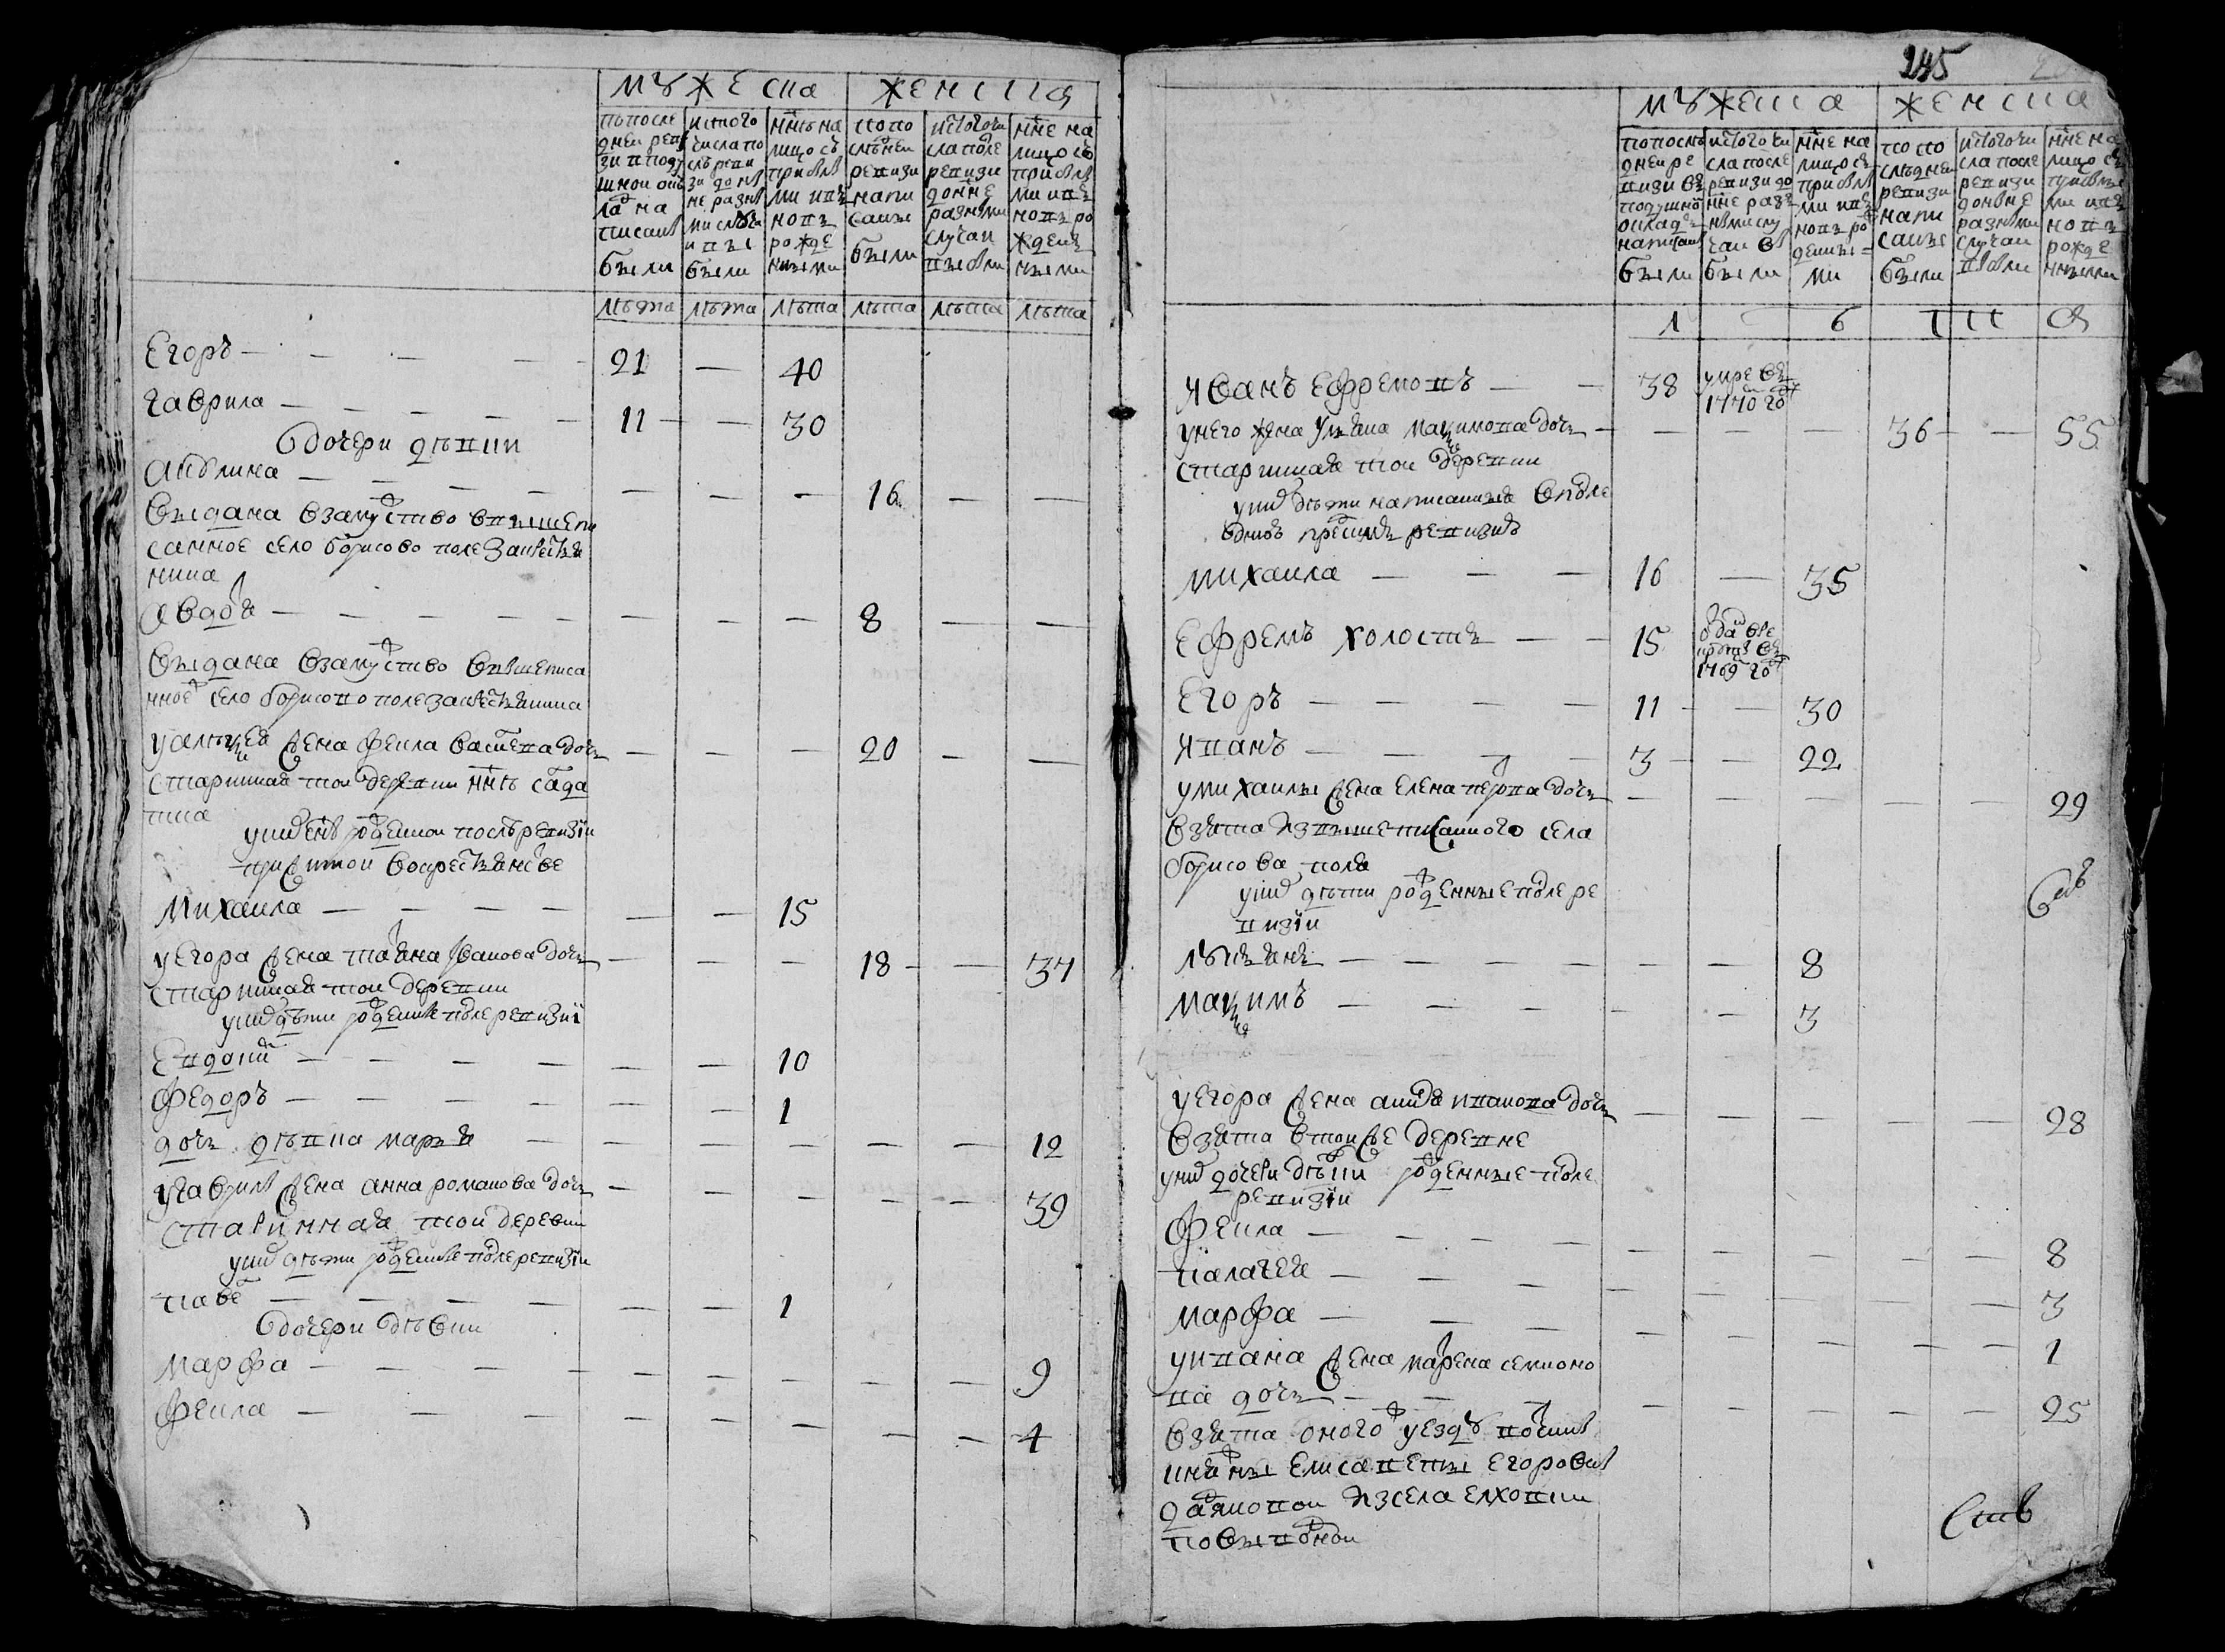 мужеска женска
по после
дней реви
зи в поду
шной ок
ладъ на
писаны
были
ис того
числа по
слъ реви
зи до нне
разны
ми случа
и выбы
были
нне на
лицо съ
прибыл
ми и вь
новь
рожде
нными
по по
слъдней
ревизи
напи
саны
были
ис того чи
сла после
ревизи
до нне
разными
случаи
выбыли
нне на
лицо съ
прибыл
ми и вь
новь ро
жденъ
ными
лъта лъта лъта лъта лъта лъта
Егоръ — — — — 21 — 40
гаврила — — — — — 11 — — 30
дочери дъвки
акулина — — — — — — — 16 — —
выдана взамуство вышепи
санное село борисово поле за кресьтья
нина
авдотья — — — — — — — 8 — —
выдана взамуство вышеписа
нное село борисово поле за кресьтьянина
у алексея жена фекла васильева дочь — — — 20 — —
старинная той деревни ннъ салда
тка
у них сынъ рожденной послъ ревизии
при житьи в крестьянстве
михаила — — — — — — 15
у егора жена татьяна иванова дочь — — — 18 — — 37
старинная той деревни
у них дъти рожденные после ревизии
Евдоким — — — — — — 10
федоръ — — — — — — 1
дочь дъвка марья — — — — — — — 12
у гаврилы жена анна романова дочь — — — — — 39
старинная той деревни
у них дъти рожденные после ревизии
павел — — — — — — 1
дочери дъвки
марфа — — — — — — — — — 9
фекла — — — — — — — — 4
245
мужеска женска
по послъ
дней ре
визи въ
подушном
окладъ
написаны
были
ис того чи
сла после
ревизи до
нне разъ
ными слу
чаи вы
были
нне на
лицо съ
прибыл
ми и вь
новь ро
жденны-
ми
по по
слъдней
ревизи
напи
саны
были
ис того чи
сла после
ревизи
до нне
разными
случаи
выбыли
нне на
лицо съ
прибылы
ми и вь
новь
рожде
нными
л ъ т а
иванъ Ефремовъ — — 38 умре въ
1770 год
у него жена ульяна максимова дочь — — — — 36 — — 55
старинная той деревни
у них дъти написанныя в после
днюю пред сим ревизию
михаила — — — 16 — 35
Ефремъ холостъ — — 15 отдан в ре
круты въ
1769 год
Егоръ — — — — 11 — — 30
иванъ — — — — 3 — — 22
у михаилы жена елена петрова дочь — — — — — 29
взята из вышеписанного села
борисова поля
у них дъти рожденные после ре
визии
лукьянъ — — — — — — 8
максимъ — — — — — — 3
у егора жена анисья иванова дочь — — — — — 28
взята в той же деревне
у них дочери дъвки рожденные после
ревизии
фекла — — — — — — — — — 8
палагея — — — — — — — — 3
марфа — — — — — — — — 1
у ивана жена матрена семионо
ва дочь — — — — — — — — 25
взята оного ж уезду вотчины
княжны елисаветы егоровны
из села елховки
по выводной